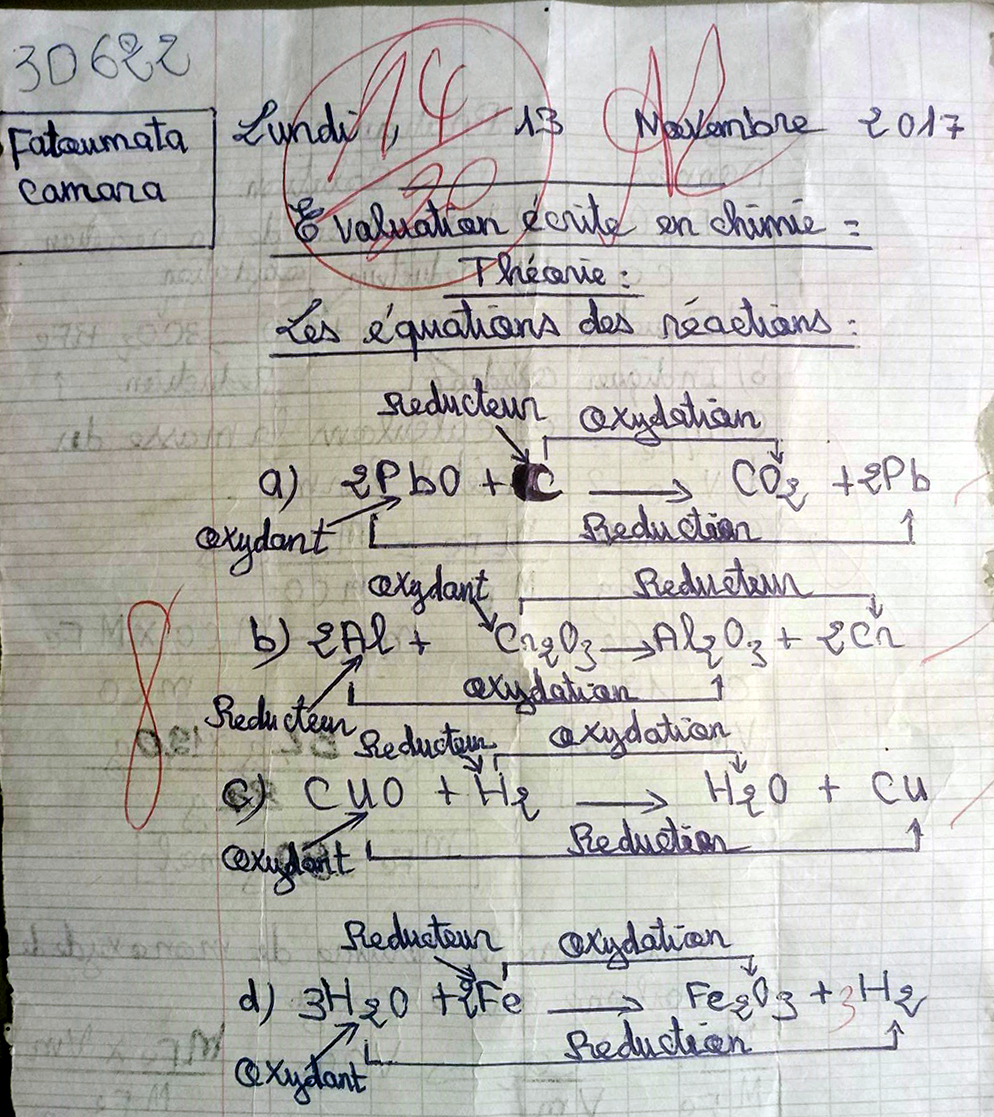 30622
Fatoumata
Camara
Lundi, 13 Novembre 2017
14/20
Evaluation écrite en chimie :
Théorie :
Les équations des réactions :
Reducteur oxydation
a) 2PbO + C → CO2 + 2Pb
oxydant Reduction
oxydant Reducteur
b) 2Al + Cr2O3 → Al2O3 + 2Cr
Reducteur oxydation
8
Reducteur oxydation
c) CUO + H2 → H2O + CU
oxydant Reduction
Reducteur oxydation
d) 3H2O + 2Fe → Fe2O3 + 3H2
oxydant Reduction